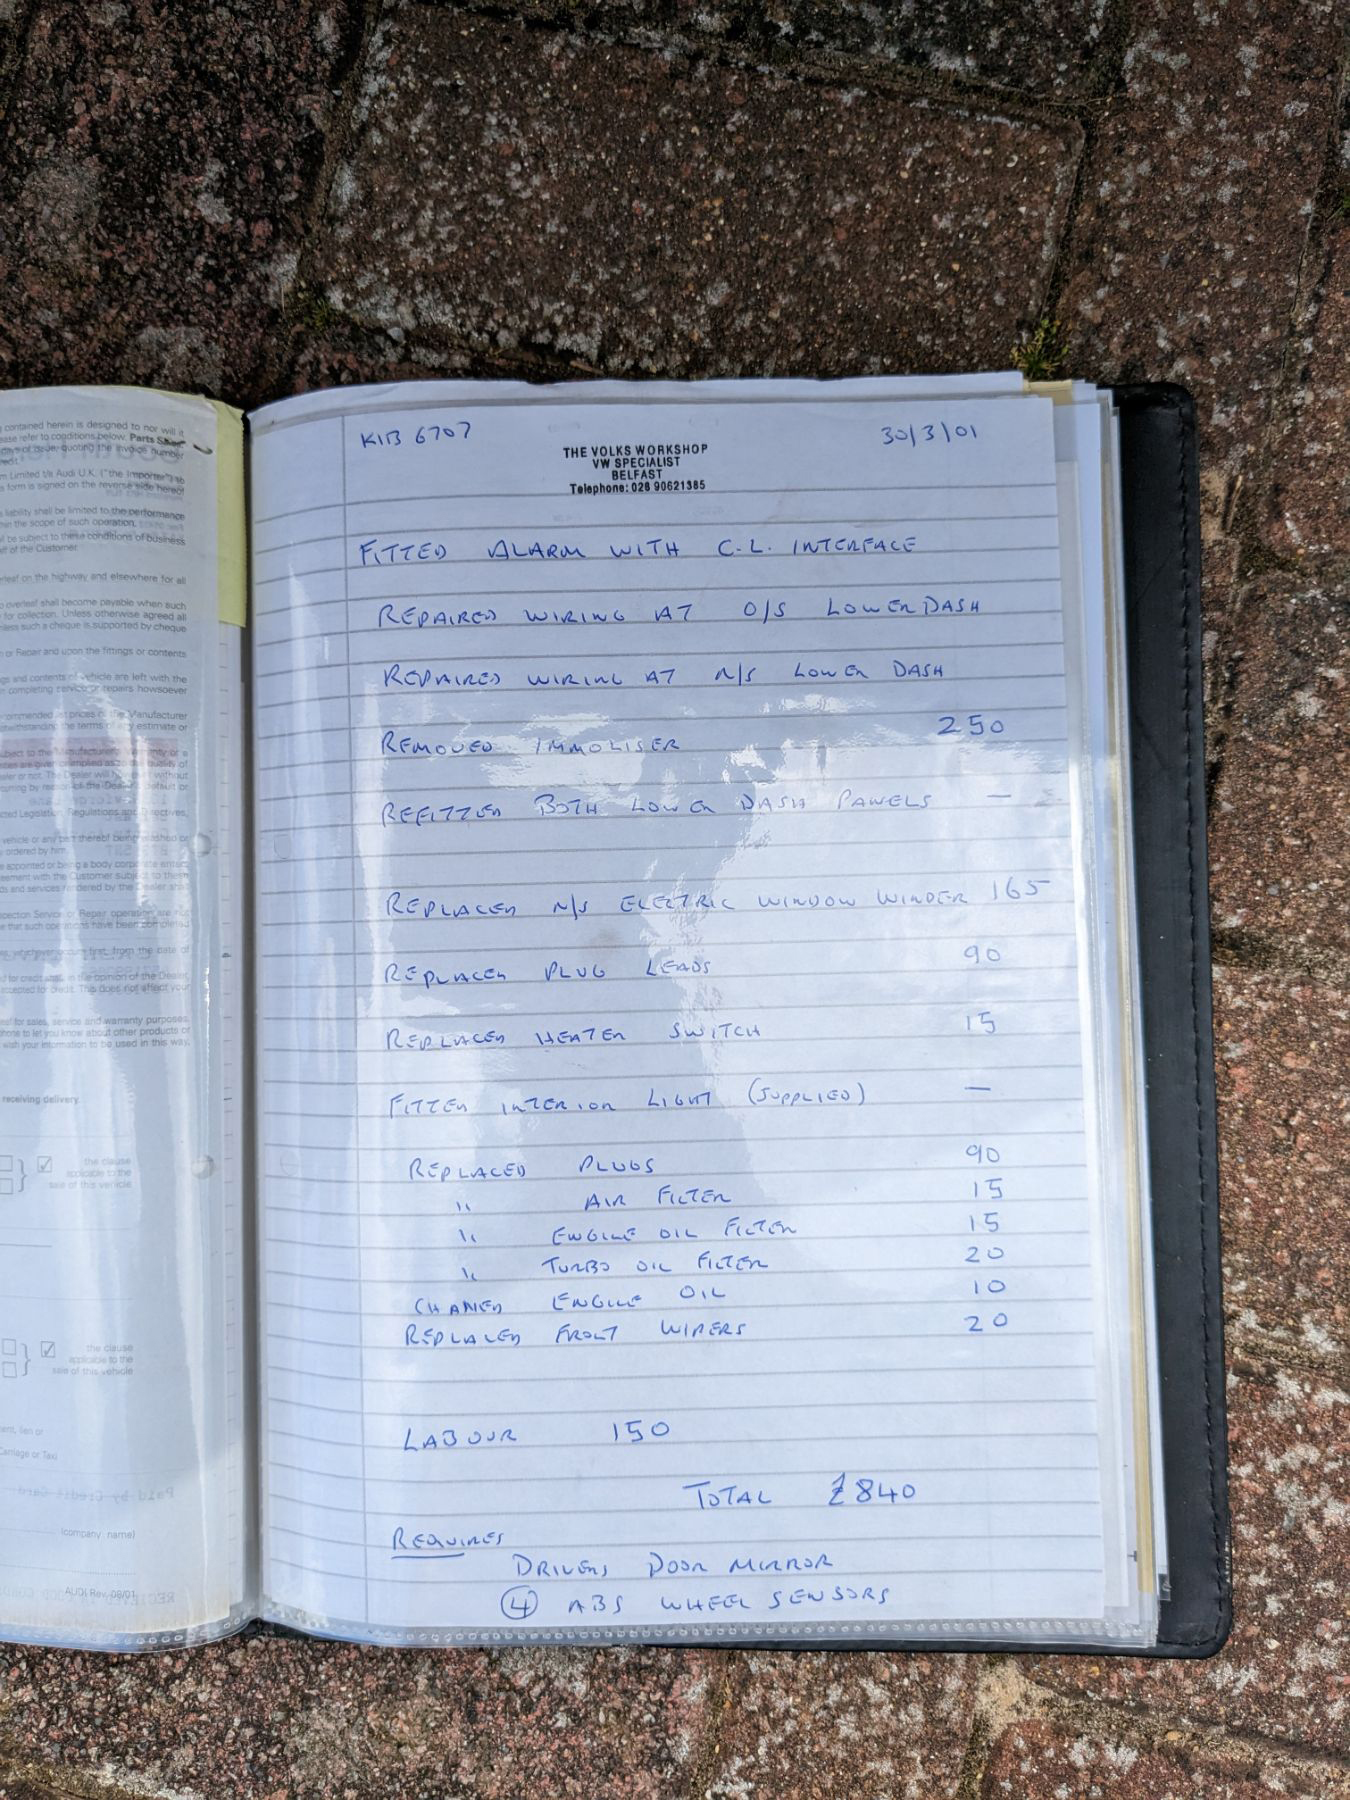 contained herein is designed to nor will it
ease refer to conditions below. Parts
days of issue, quoting the invoice number
redit."
m Limited t/a Audi U.K. ("the Importer") to
s form is signed on the reverse side hereof
liability shall be limited to the performance
hin the scope of such operation.
l be subject to these conditions of business
lf of the Customer
erleaf on the highway and elsewhere for all
o overleaf shall become payable when such
for collection. Unless otherwise agreed all
nless such a cheque is supported by cheque
n or Repair and upon the fittings or contents
gs and contents of vehicle are left with the
completing service or repairs howsoever
ecommended list prices of the Manufacturer
withstanding the terms of any estimate or
ubject to the Manufacturer's Warranty or a
ties are given or implied as to the quality of
ealer or not. The Dealer will without
curing by reason of the Dealer's default or
cted Legislation, Regulations and Directives,
vehicle or any part thereof being washed or
ordered by him.
e appointed or being a body corporate enters
eement with the Customer subject to these
ds and services rendered by the Dealer shall
spection Service or Repair operation are not
e that such operations have been completed
whichever occurs first, from the date of
d for credit shall, in the opinion of the Dealer,
accepted for credit. This does not affect your
eaf for sales, service and warranty purposes.
phone to let you know about other products or
wish your information to be used in this way,
receiving delivery.
the clause
applicable to the
sale of this vehicle
the clause
applicable to the
sale of this vehicle
ent, lien or
Carriage or Taxi
Paid by Credit Card
(company name)
AUDI Rev. 08/01
KIB 6707
30/3/01
THE VOLKS WORKSHOP
VW SPECIALIST
BELFAST
Telephone: 028 90621385
FITTED ALARM WITH C.L. INTERFACE
REPAIRED WIRING AT O/S LOWER DASH
REPAIRED WIRING AT N/S LOWER DASH
REMOVED IMMOLISER 250
REFITTED BOTH LOWER DASH PANELS —
REPLACED N/S ELECTRIC WINDOW WINDER 165
REPLACED PLUG LEADS 90
REPLACED HEATER SWITCH 15
FITTED INTERIOR LIGHT (SUPPLIED) —
REPLACED PLUGS 90
" AIR FILTER 15
" ENGINE OIL FILTER 15
" TURBO OIL FILTER 20
CHANED ENGINE OIL 10
REPLACED FRONT WIPERS 20
LABOUR 150
TOTAL £840
REQUIRES
DRIVERS DOOR MIRROR
④ ABS WHEEL SENSORS